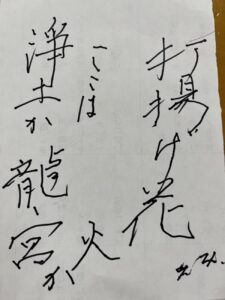 打揚げ花
火
ここは
浄土か龍宮か
えみ